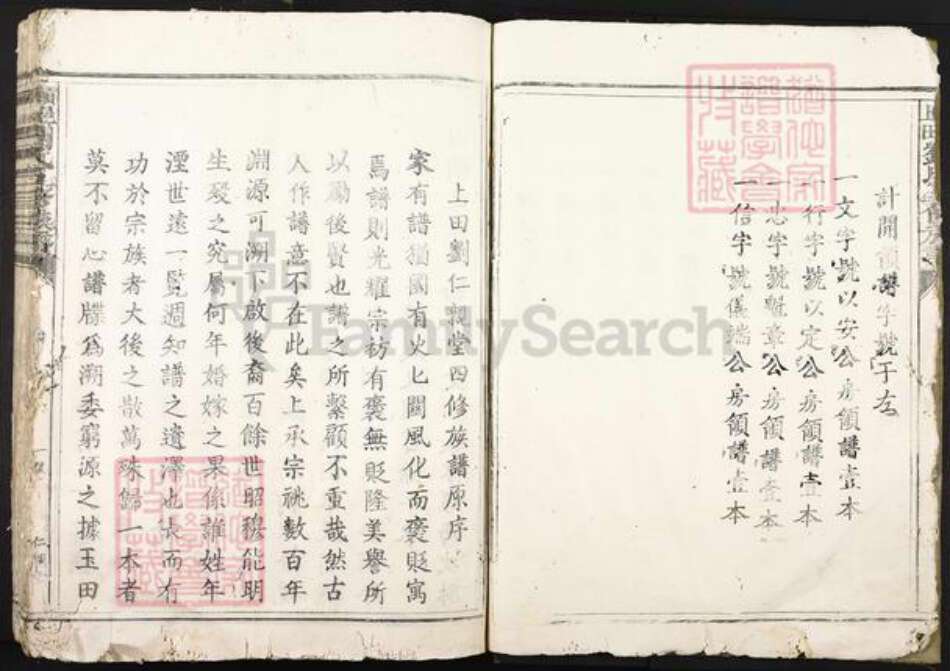 計開領譜字號于左
一文字號以安公房領譜壹本
一行字號以定公房領譜壹本
一忠字號魁章公房領譜壹本
一信字號儀端公房領譜壹本
上田劉仁親堂四修族譜原序
家有譜猶國有火匕關風化而褒貶寓
焉譜則光耀宗祊有褒無貶隆美譽所
以勵後賢也譜之所繫顧不重哉然古
人作譜意不在此矣上承宗祧數百年
淵源可溯下啟後裔百餘世昭穆能明
生歿之究屬何年婚嫁之果係誰姓年
湮世遠一覽週知譜之遺澤也長而有
功於宗族者大後之散萬殊歸一本者
莫不留心譜牒為溯委窮源之據玉田
FamilySearch